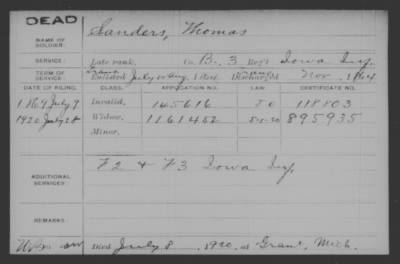 DEAD
NAME OF SOLDIER: Sanders, Thomas
SERVICE: Late rank, Co. B, 3 Reg't Iowa Inf.
TERM OF SERVICE: Enlisted July or Aug, 1861 Discharged Nov, 1864
DATE OF FILING. CLASS. APPLICATION NO. LAW. CERTIFICATE NO.
1869 July 9 Invalid, 145616 118803
1920 July 28 Widow, 1161452 895935
Minor,
ADDITIONAL SERVICES: F 2 & F 3 Iowa Inf.
REMARKS:
Died July 8, 1920, at Grant, Mich.